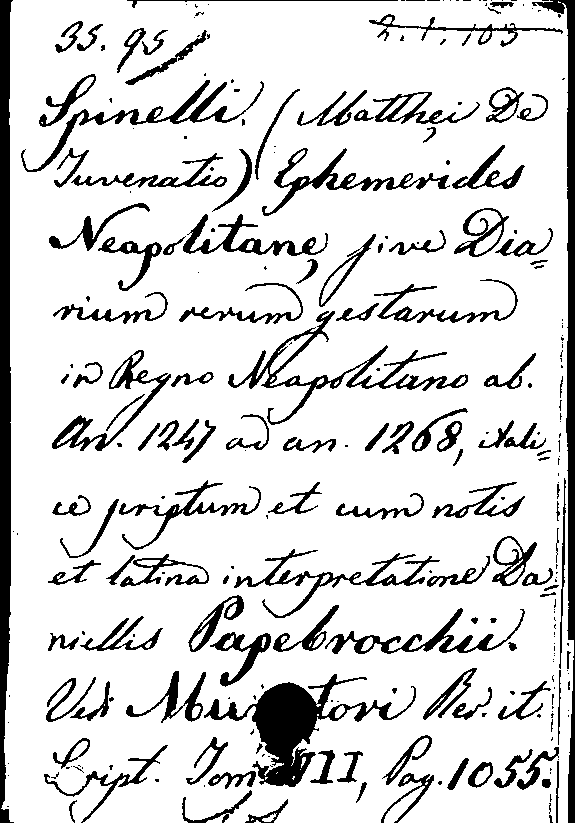 35. 95 2.1.103
Spinelli. (Matthęi De
Iuvenatio) Ephemerides
Neapolitanę, sive Dia=
rium rerum gestarum
in Regno Neapolitano ab.
An. 1247 ad an. 1268, itali=
ce scriptum et cum notis
et latina interpretatione Da=
niellis Papebrocchii.
Vedi Rer. it.
Script. Pag. 1055.